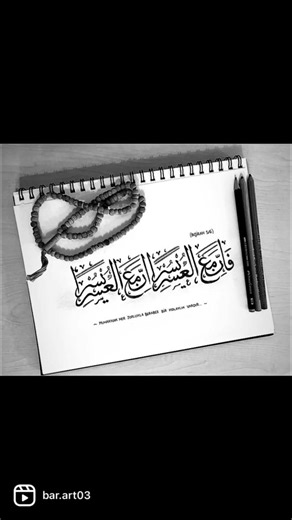 (İnşirah 5-6)
فَإِنَّ مَعَ الْعُسْرِ يُسْرًا إِنَّ مَعَ الْعُسْرِ يُسْرًا
~ Muhakkak her zorlukla beraber bir kolaylık vardır.. ~
bar.art03